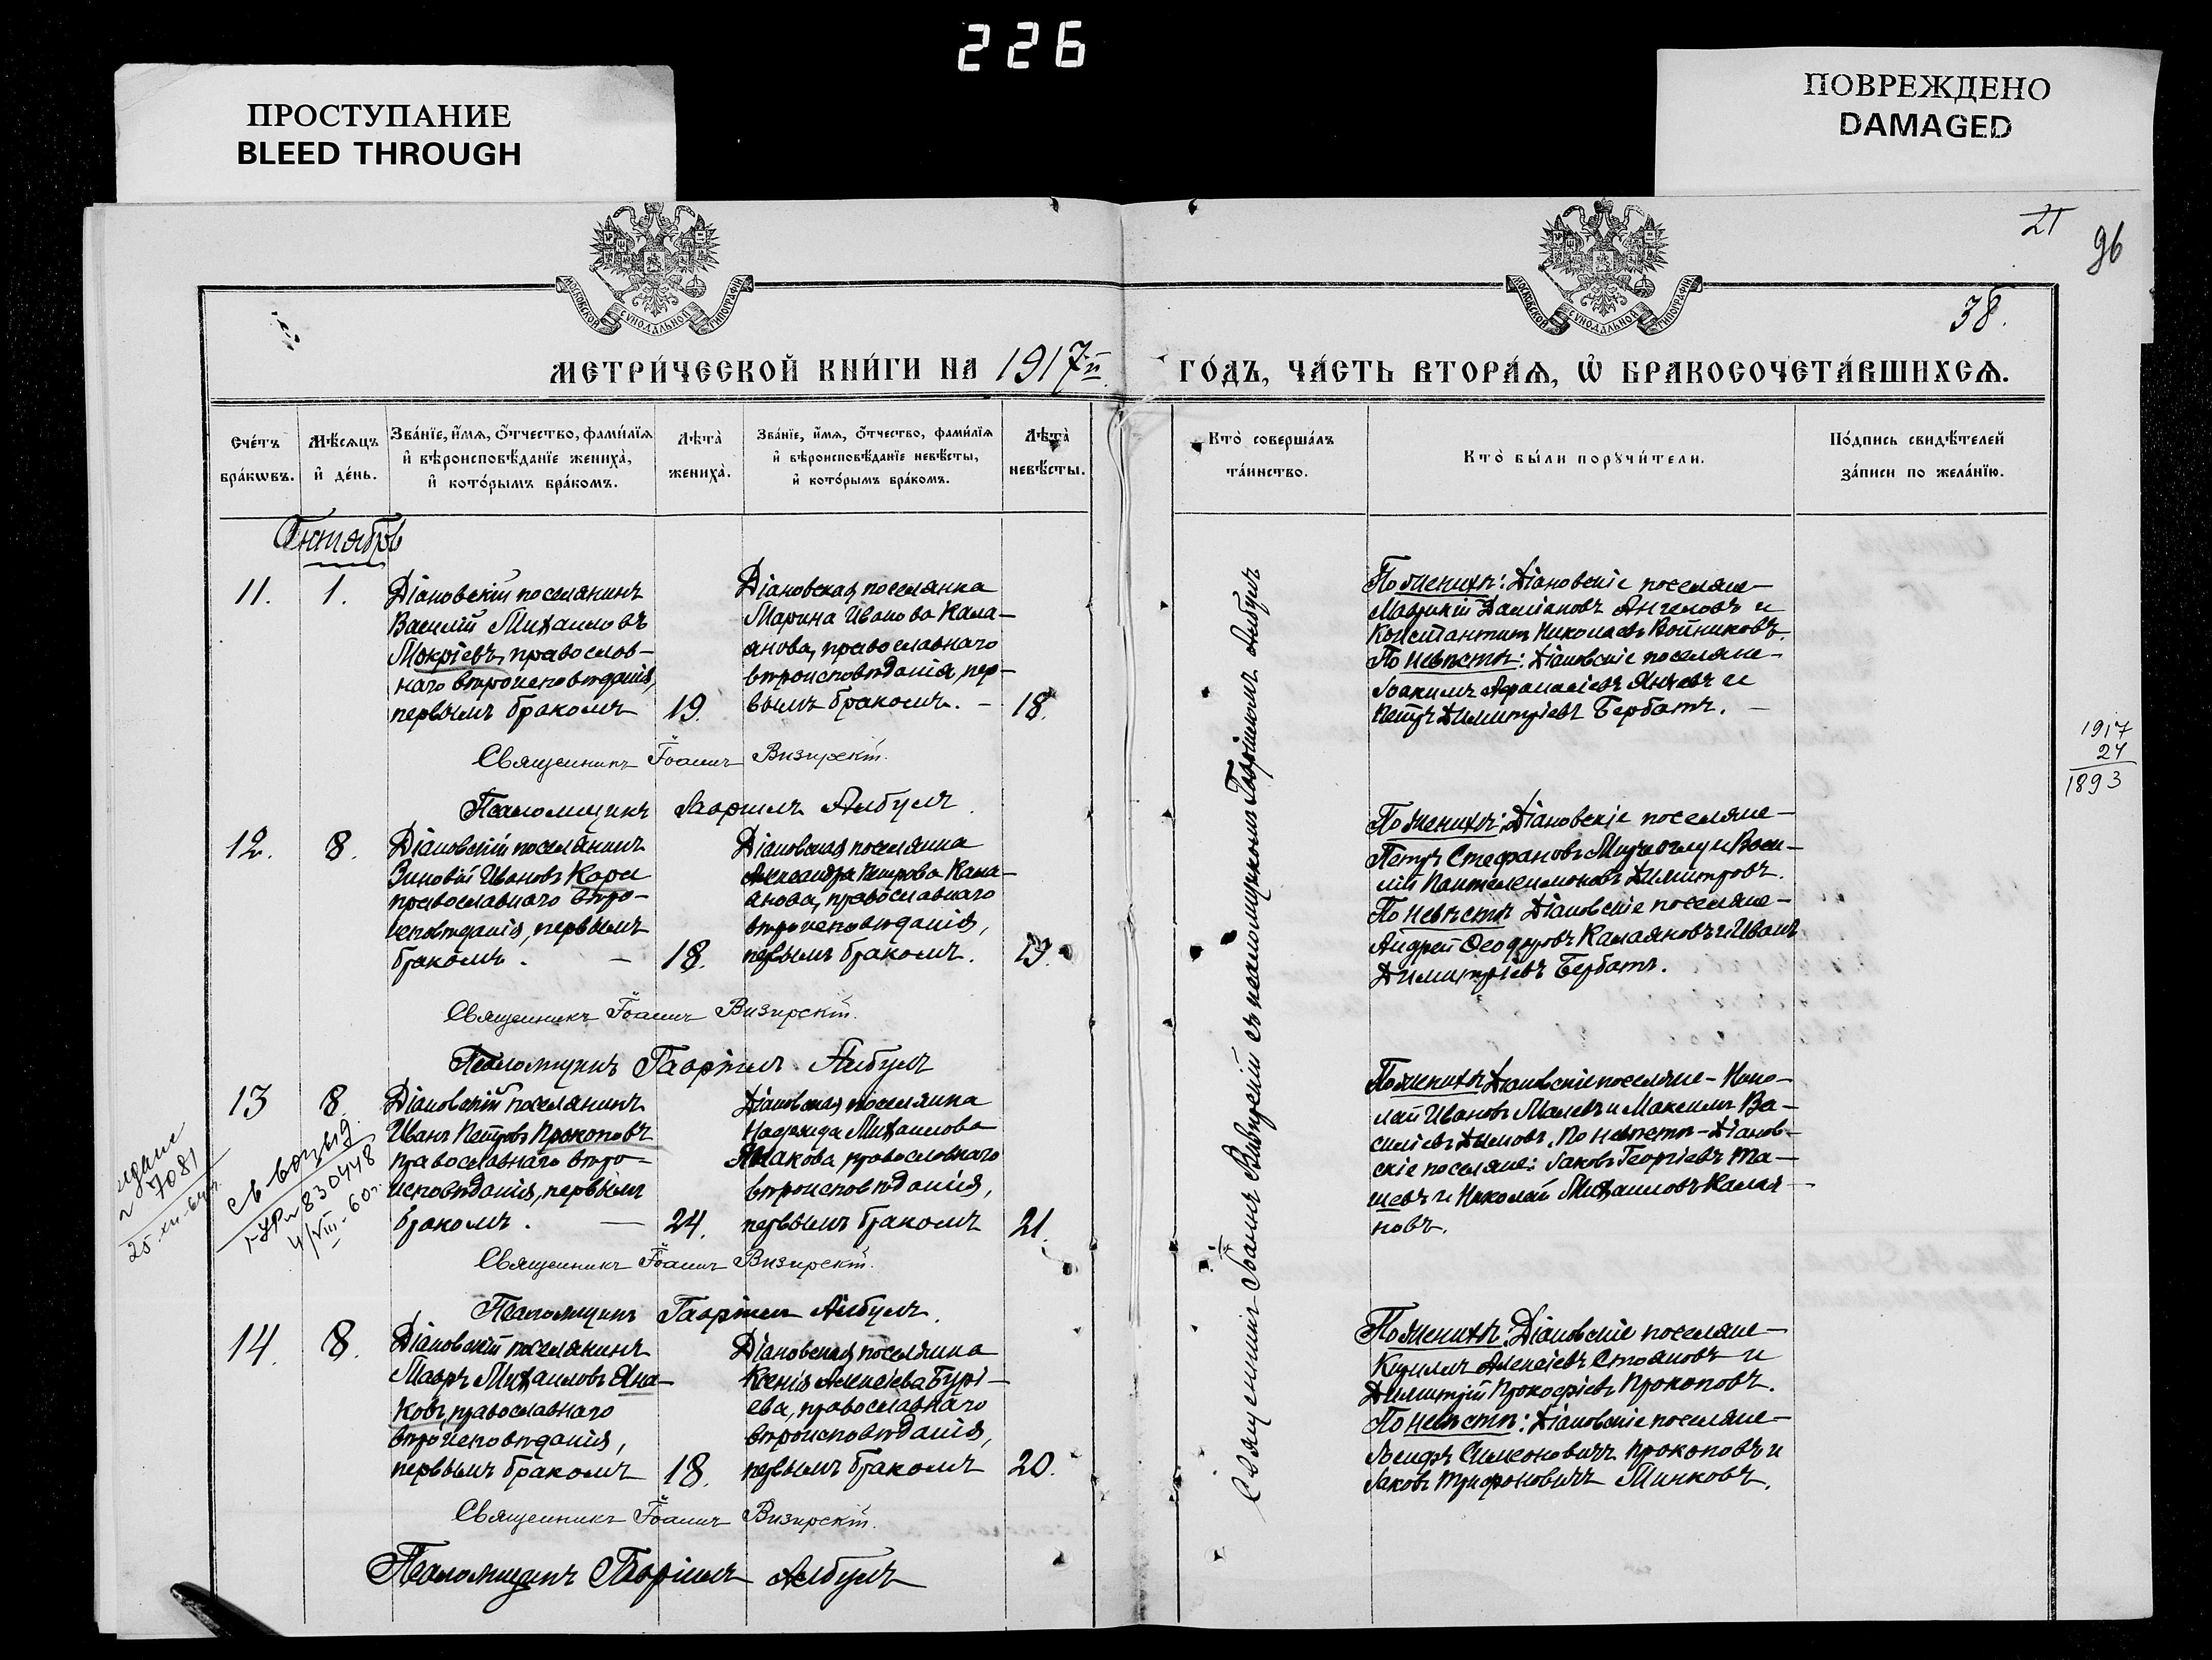 226
ПРОСТУПАНИЕ
BLEED THROUGH
ПОВРЕЖДЕНО
DAMAGED
21
96
38.
МОСКОВСКОЙ СѴНОДАЛЬНОЙ ТИПОГРАФІИ
МОСКОВСКОЙ СѴНОДАЛЬНОЙ ТИПОГРАФІИ
МЕТРИ́ЧЕСКОЙ КНИ́ГИ НА 1917й
ГО́ДЪ, ЧА́СТЬ ВТОРА́Ѧ, Ѡ҆ БРАКОСОЧЕТА́ВШИХСѦ.
Сче́тъ бра́кѡвъ.
Мѣ́сѧцъ и҆ де́нь.
Зва́нїе, и҆́мѧ, ѻ҆́тчество, фами́лїѧ
и҆ вѣроисповѣ́данїе жениха̀,
и҆ кото́рымъ бра́комъ.
Лѣ́та̀ жениха̀.
Зва́нїе, и҆́мѧ, ѻ҆́тчество, фами́лїѧ
и҆ вѣроисповѣ́данїе невѣ́сты,
и҆ кото́рымъ бра́комъ.
Лѣ́та̀ невѣ́сты.
Кто̀ соверша́лъ та́инство.
Кто̀ бы́ли порꙋчи́тели.
По́дпись свидѣ́телей
за́писи по жела́нїю.
Октябрь
11.
1.
Діановскій поселянинъ
Василій Михаиловъ
Мокріевъ, православ-
наго вѣроисповѣданія,
первымъ бракомъ
19.
Діановская поселянка
Марина Иванова Кала-
янова, православнаго
вѣроисповѣданія, пер-
вымъ бракомъ. –
18.
По женихѣ: Діановскіе поселяне –
Даміановъ Ангеловъ и
Константинъ Николаевъ Войниковъ.
По невѣстѣ: Діановскіе поселяне –
Іоакимъ Афанасіевъ Янчевъ и
Петръ Димитріевъ Бербатъ. –
Священникъ Іоаннъ Визирскій.
Псаломщикъ Гавріилъ Албулъ.
12.
8.
Діановскій поселянинъ
Зиновій Ивановъ Кара
православнаго вѣро-
исповѣданія, первымъ
бракомъ. –
18.
Діановская поселянка
Александра Петрова Кала-
янова, православнаго
вѣроисповѣданія,
первымъ бракомъ.
19.
По женихѣ: Діановскіе поселяне –
Петръ Стефановъ и Васи-
лій Пантелеимоновъ Димитровъ.
По невѣстѣ Діановскіе поселяне –
Андрей Ѳеодоровъ Калаяновъ и Иванъ
Димитріевъ Бербатъ.
Священникъ Іоаннъ Визирскій.
Псаломщикъ Гавріилъ Албулъ
13
8.
Діановскій поселянинъ
Иванъ Петровъ Прокоповъ
православнаго вѣро-
исповѣданія, первымъ
бракомъ. –
24.
Діановская поселянка
Надежда Михаилова
Янакова, православнаго
вѣроисповѣданія,
первымъ бракомъ
21.
По женихѣ Діановскіе поселяне – Нико-
лай Ивановъ Малевъ и Максимъ Ва-
силіевъ Димовъ. По невѣстѣ – Діанов-
скіе поселяне: Іаковъ Георгіевъ Та-
шевъ и Николай Михаиловъ Калая-
новъ.
7081
830448
4/VIII-60г.
1917
24
1893
Священникъ Іоаннъ Визирскій.
Псаломщикъ Гавріилъ Албулъ.
14.
8.
Діановскій поселянинъ
Мавръ Михаиловъ Яна-
ковъ, православнаго
вѣроисповѣданія,
первымъ бракомъ
18.
Діановская поселянка
Ксенія Алексіева Бурі-
ева, православнаго
вѣроисповѣданія,
первымъ бракомъ
20.
По женихѣ: Діановскіе поселяне –
Кириллъ Алексіевъ Стояновъ и
Димитрій Прокофіевъ Прокоповъ.
По невѣстѣ: Діановскіе поселяне –
Симеоновичъ Прокоповъ и
Іаковъ Трифоновичъ Минковъ.
Священникъ Іоаннъ Визирскій.
Псаломщикъ Гавріилъ Албулъ
Священникъ Іоаннъ Визирскій съ псаломщикомъ Гавріиломъ Албулъ